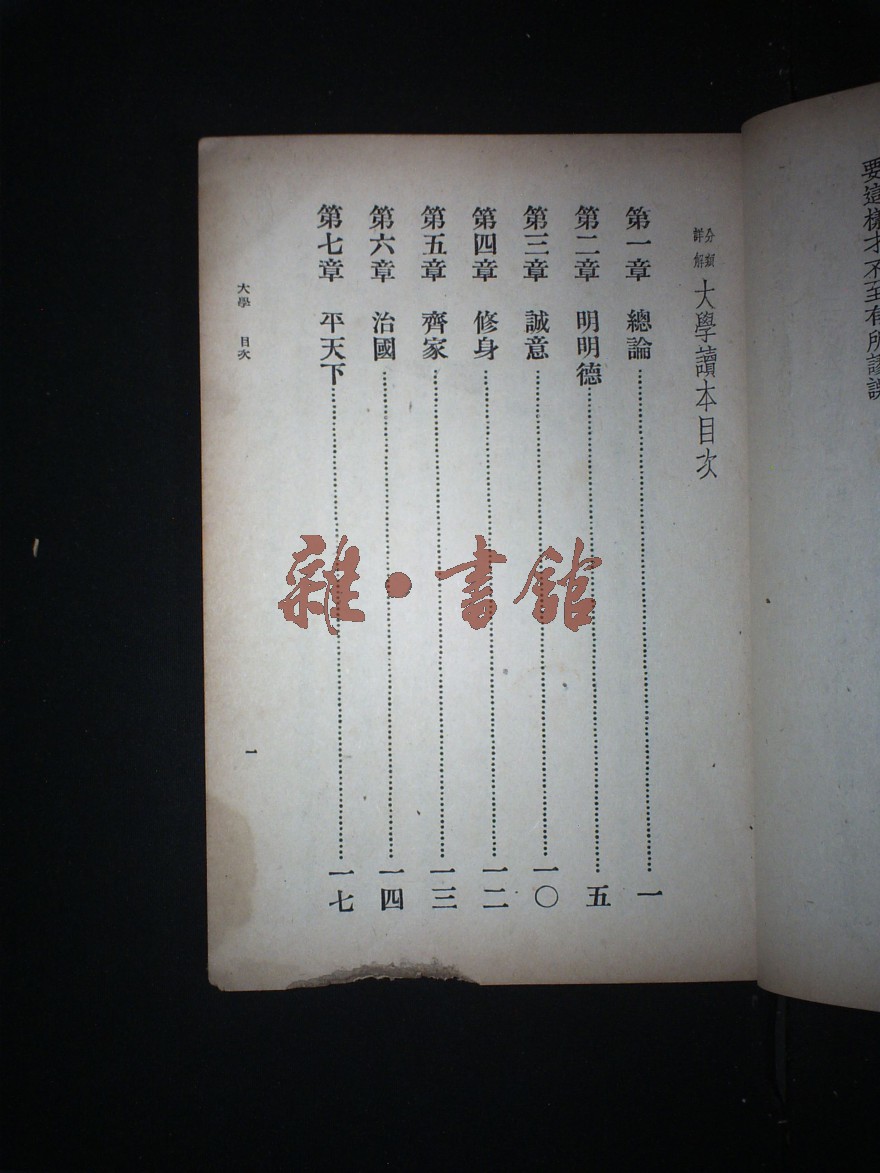 要這樣才不至有所謬誤
分類詳解 大學讀本目次
第一章 總論……一
第二章 明明德……五
第三章 誠意……一〇
第四章 修身……一二
第五章 齊家……一三
第六章 治國……一四
第七章 平天下……一七
大學 目次 一
雜·書館